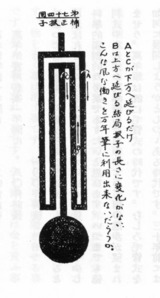 第七十四圖
補正振子
AとCが下方へ延びるだけ
Bは上方へ延びる結局振子の長さに変化がない
こんな風な働きを万年筆に利用出来ないだらうか。